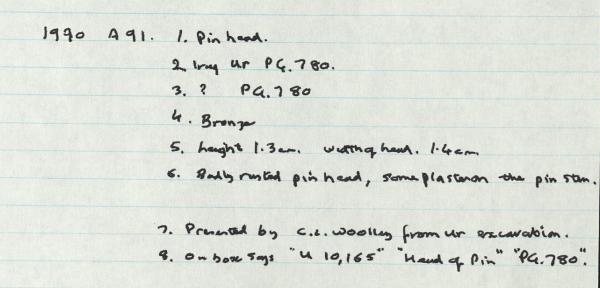 1990 A 91. 1. Pin head.
2. Iraq Ur PG.780.
3. ? PG.780
4. Bronze
5. height 1.3cm. width of head. 1.4cm
6. Badly rusted pin head, some plaster on the pin stem.
7. Presented by C.L. Woolley from Ur excavation.
8. On box says "U 10,165" "Head of Pin" "PG.780".